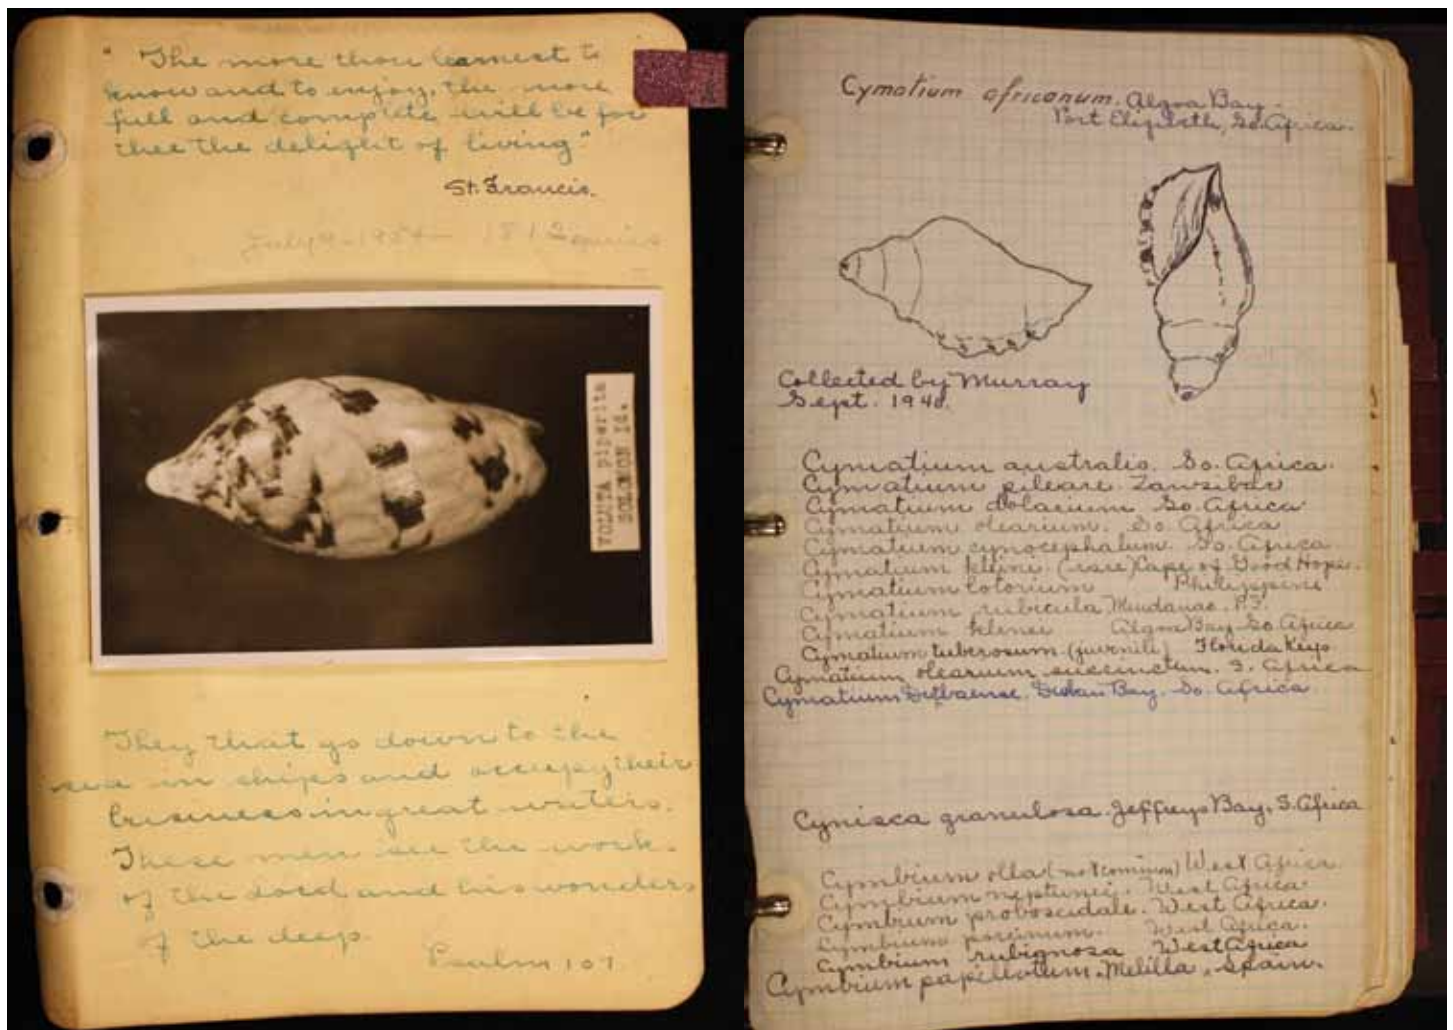 " The more thou learnest to
know and to enjoy, the more
full and complete will be for
thee the delight of living"
St. Francis.
July 9-1954- 1812 species
VOLUTA piperita
SOLOMON Id.
They that go down to the
sea in ships and occupy their
business in great waters.
These men see the work.
of the Lord and his wonders
of the deep.
Psalm 107.
Cymatium africanum. Algoa Bay.
Port Elizabeth, So. Africa.
Collected by Murray
Sept. 1940.
Cymatium australis. So. Africa.
Cymatium pileare. Zanzibar
Cymatium dolarium So. Africa
Cymatium olearium. So Africa
Cymatium cynocephalum. So. Africa.
Cymatium kleinei (rare) Cape of Good Hope.
Cymatium lotorium Philippine
Cymatium rubicula Mindanao. P.I.
Cymatium klenei Algoa Bay So. Africa
Cymatium tuberosum (juvenile) Florida Keys
Cymatium olearium succinctum. S. Africa
Cymatium Bay. So. Africa
Cynisca granulosa. Jeffreys Bay. S. Africa
Cymbium olla (not common) West Africa
Cymbium neptunei. West Africa
Cymbium proboscidale. West Africa.
Cymbium porcinum. West Africa.
Cymbium rubignosa West Africa
Cymbium papillotum. Melilla, Spain.